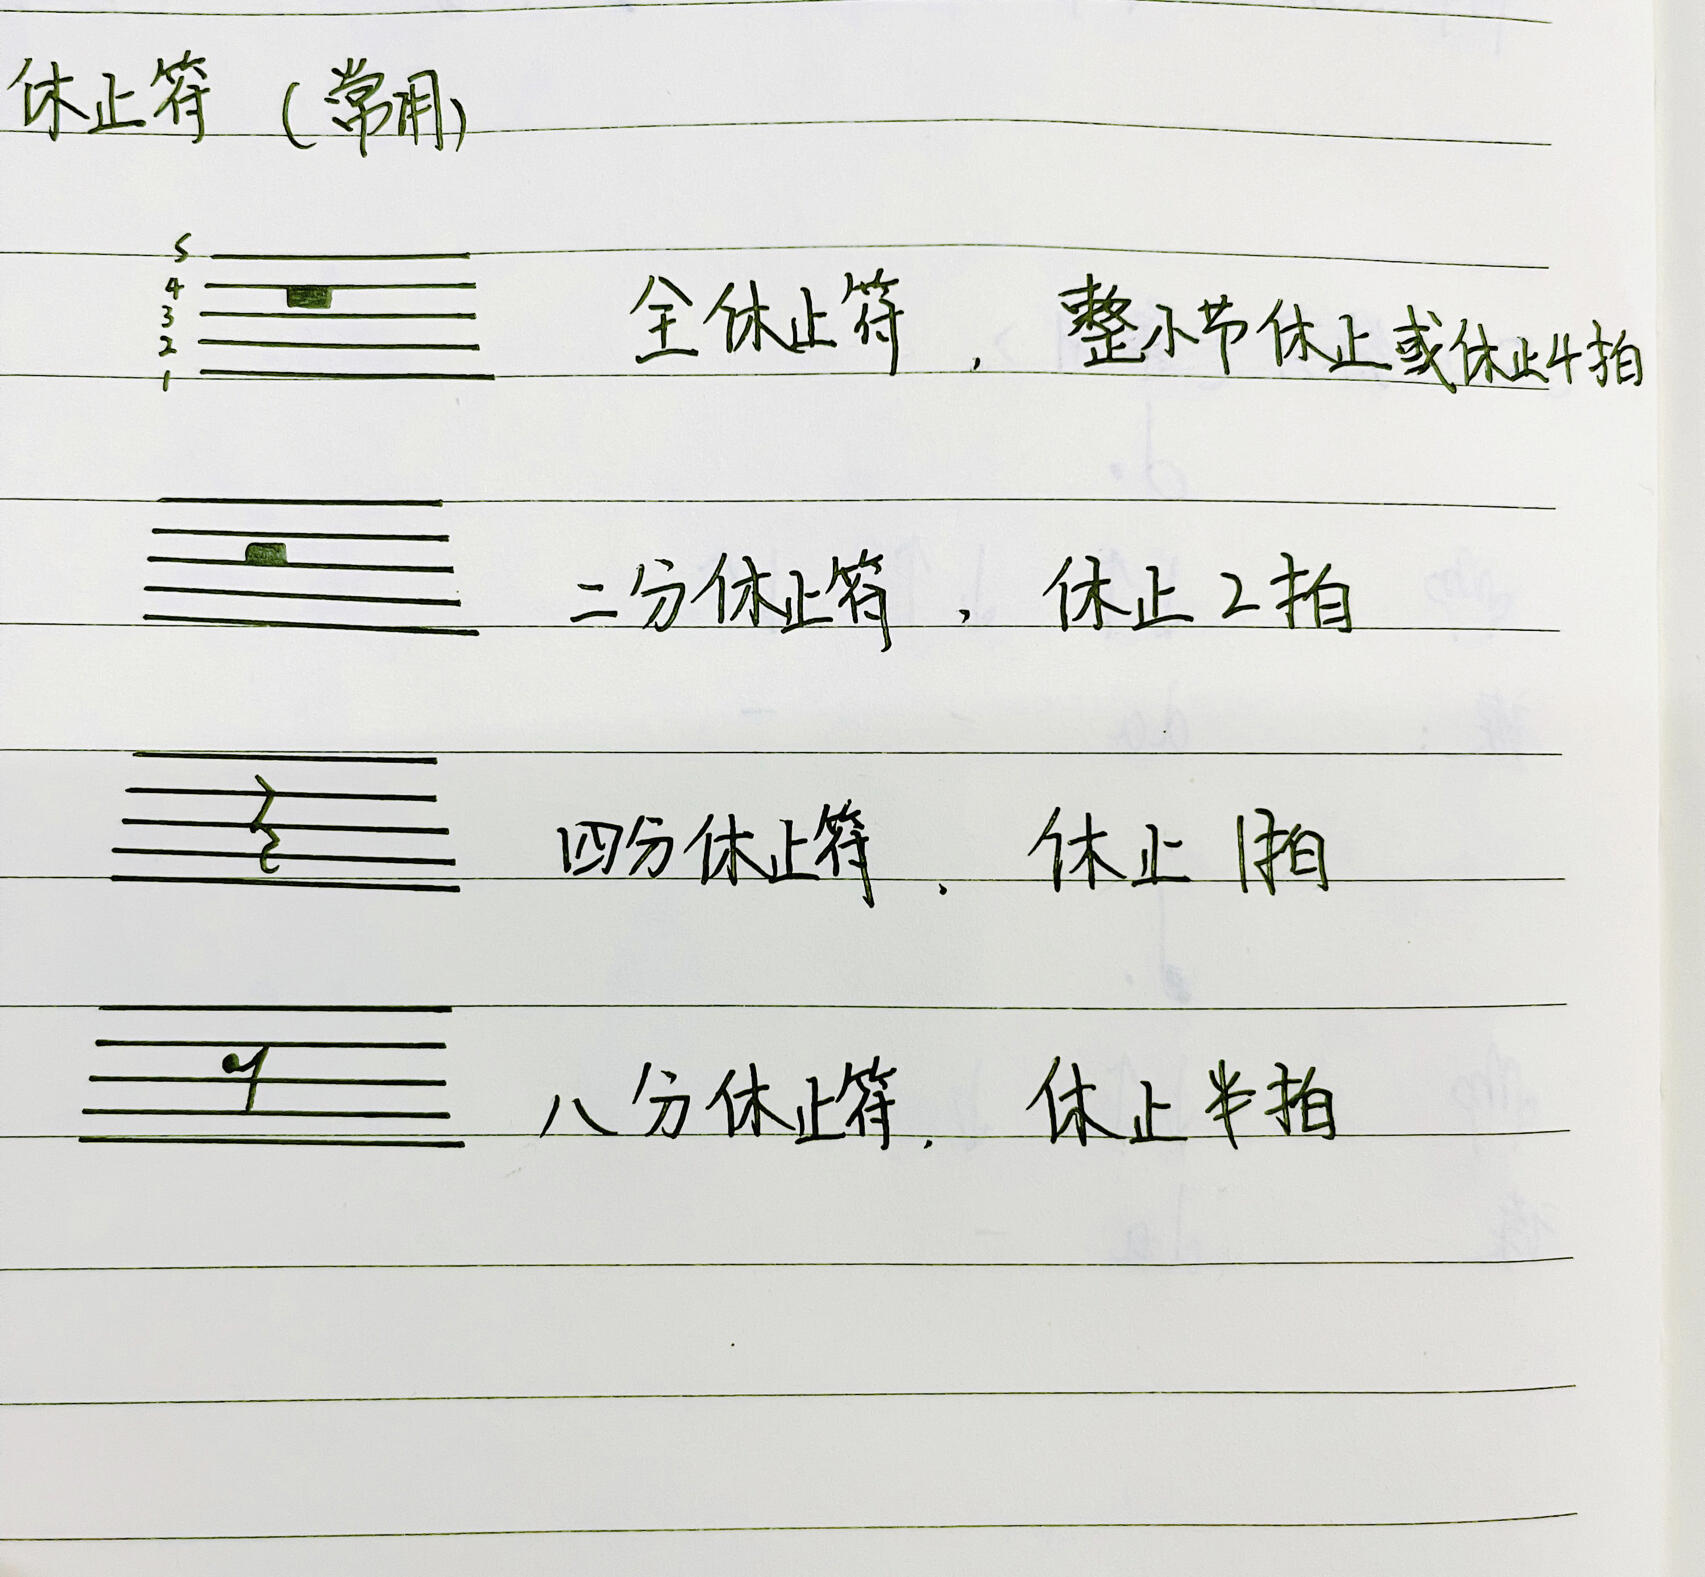 休止符（常用）
5
4
3
2
1
全休止符，整小节休止或休止4拍
二分休止符，休止2拍
四分休止符，休止1拍
八分休止符，休止半拍